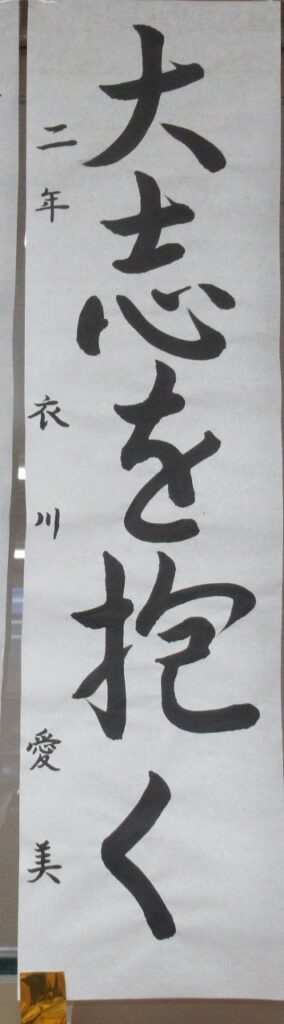 大志を抱く
二年 衣川愛美